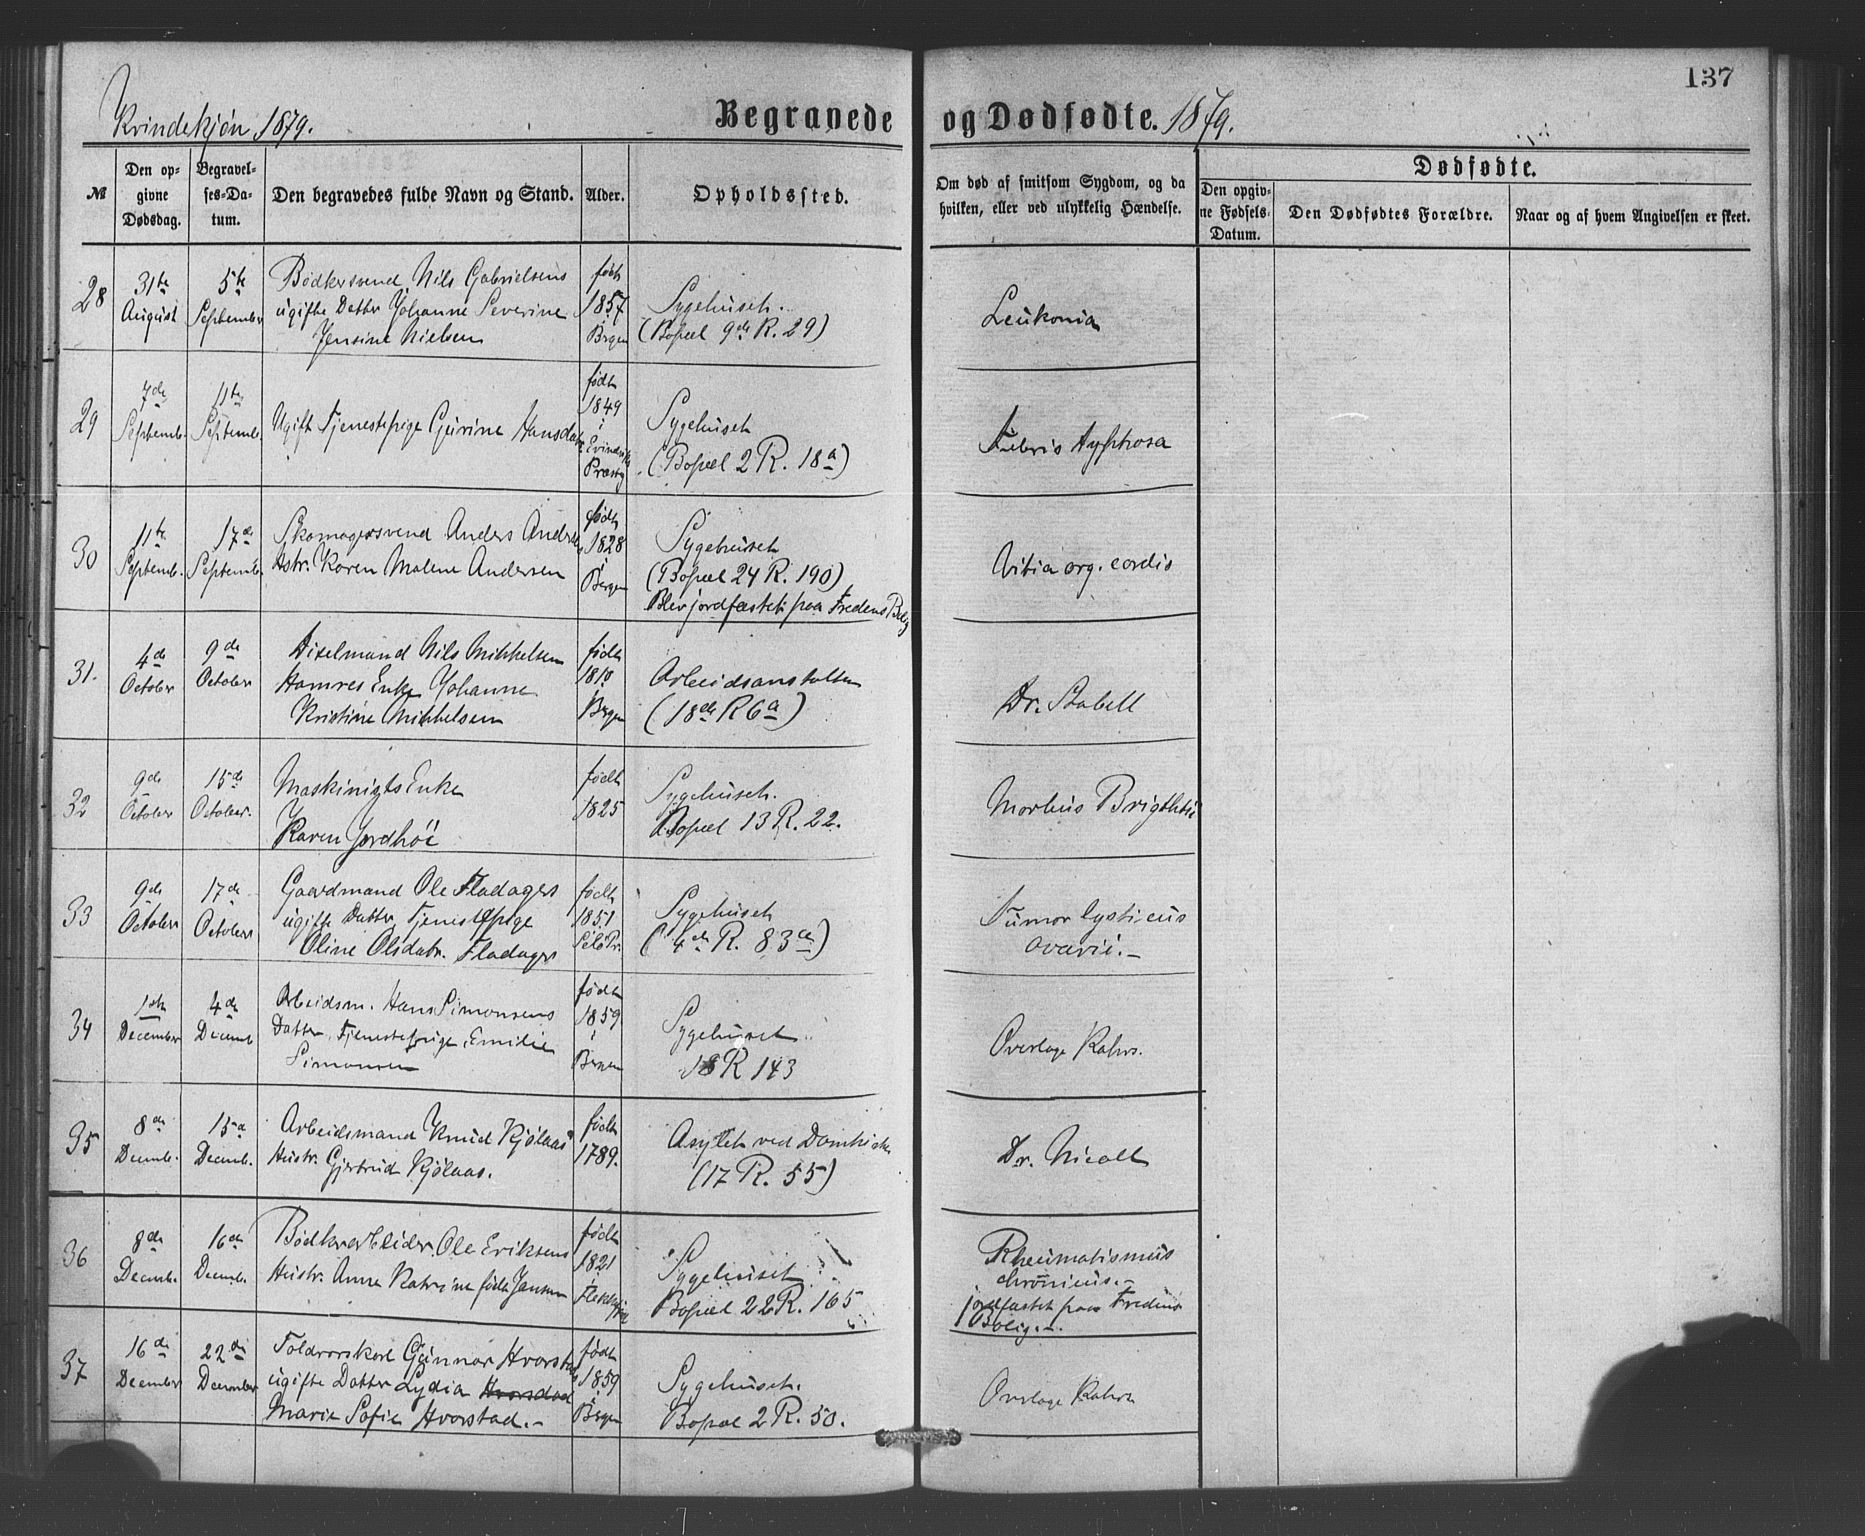 137
Kvindekjön 1879.
Begravede og Dødfødte. 1879.
№
Den opgivne Dødsdag.
Begravelses-Datum.
Den begravedes fulde Navn og Stand.
Alder.
Opholdssted.
Om død af smitsom Sygdom, og da hvilken, eller ved ulykkelig Hændelse.
Dødfødte.
Den opgivne Fødsels-Datum.
Den Dødfødtes Forældre.
Naar og af hvem Angivelsen er skeet.
28
31te August
5te September
Bödkersvend Nils Gabrielsens
ugifte Datter Johanne Severine
Jensine Nielsen
født 1857 i Bergen
Sygehuset.
(Bopæl 9de R. 29)
Leukonia
29
7de Septemb.
11te Septemb.
Ugift Tjenestepige Gurine Hansdatr.
født 1849 i Evindvik Præstg
Sygehuset
(Bopæl 2 R. 18a)
Febris typhosa
30
11te Septemb.
17de Septemb.
Skomagersvend Anders Andersens
Hstr. Karen Malene Andersen
født 1828 i Bergen
Sygehuset
(Bopæl 24 R. 190)
Blev jordfæstet paa Fredens Bolig
Vitia org. cordis
31.
4de October
9de October
Nils Mikkelsen
Hamres Enke Johanne
Kristine Mikkelsen
født 1810 i Bergen
Arbeidsanstalten
(18de R 6a)
Dr. Stabell
32
9de October
15de October.
Maskinists Enke
Karen Jordhöi
født 1825
Sygehuset.
Bopæl 13 R. 22.
Morbus Brigthtii
33
9de October
17de October
Gaardmand Ole Fladagers
ugifte Datter Tjenestepige
Oline Olsdatr. Fladager
født 1851 Selö Pr.
Sygehuset
(4de R. 83a)
Tumor Cysticus
ovarii.-
34
1ste December
4de Decemb
Arbeidsm. Hans Simonsens
Datter, Tjenestepige, Emilie
Simonsen
født 1859 i Bergen
Sygehuset
18 R 143
Overlæge Rahrs.
35
8de Decemb.
15de Decemb.
Arbeidsmand Knud Kjölaas
Hustr. Gjertrud Kjölaas.
født 1789.
Asylet ved Domkirken
(17 R. 55)
Dr. Nicoll
36
8de Decemb.
16de Decemb.
Bödkerarbeider Ole Eriksens
Hustr. Anne Katrine født Jansen
født 1821 i
Sygehuset
Bopæl 22 R. 165
Rheumatismus
chronicus.-
jordfæstet paa Fredens
Bolig.-
37
16de December
22de December
Toldrorskarl Gunnar Hvorstads
ugifte Datter Lydia Hvorstad
Marie Sofie Hvorstad.-
født 1859 i Bergen
Sygehuset.
Bopæl 2 R. 50.
Overlæge Rahrs